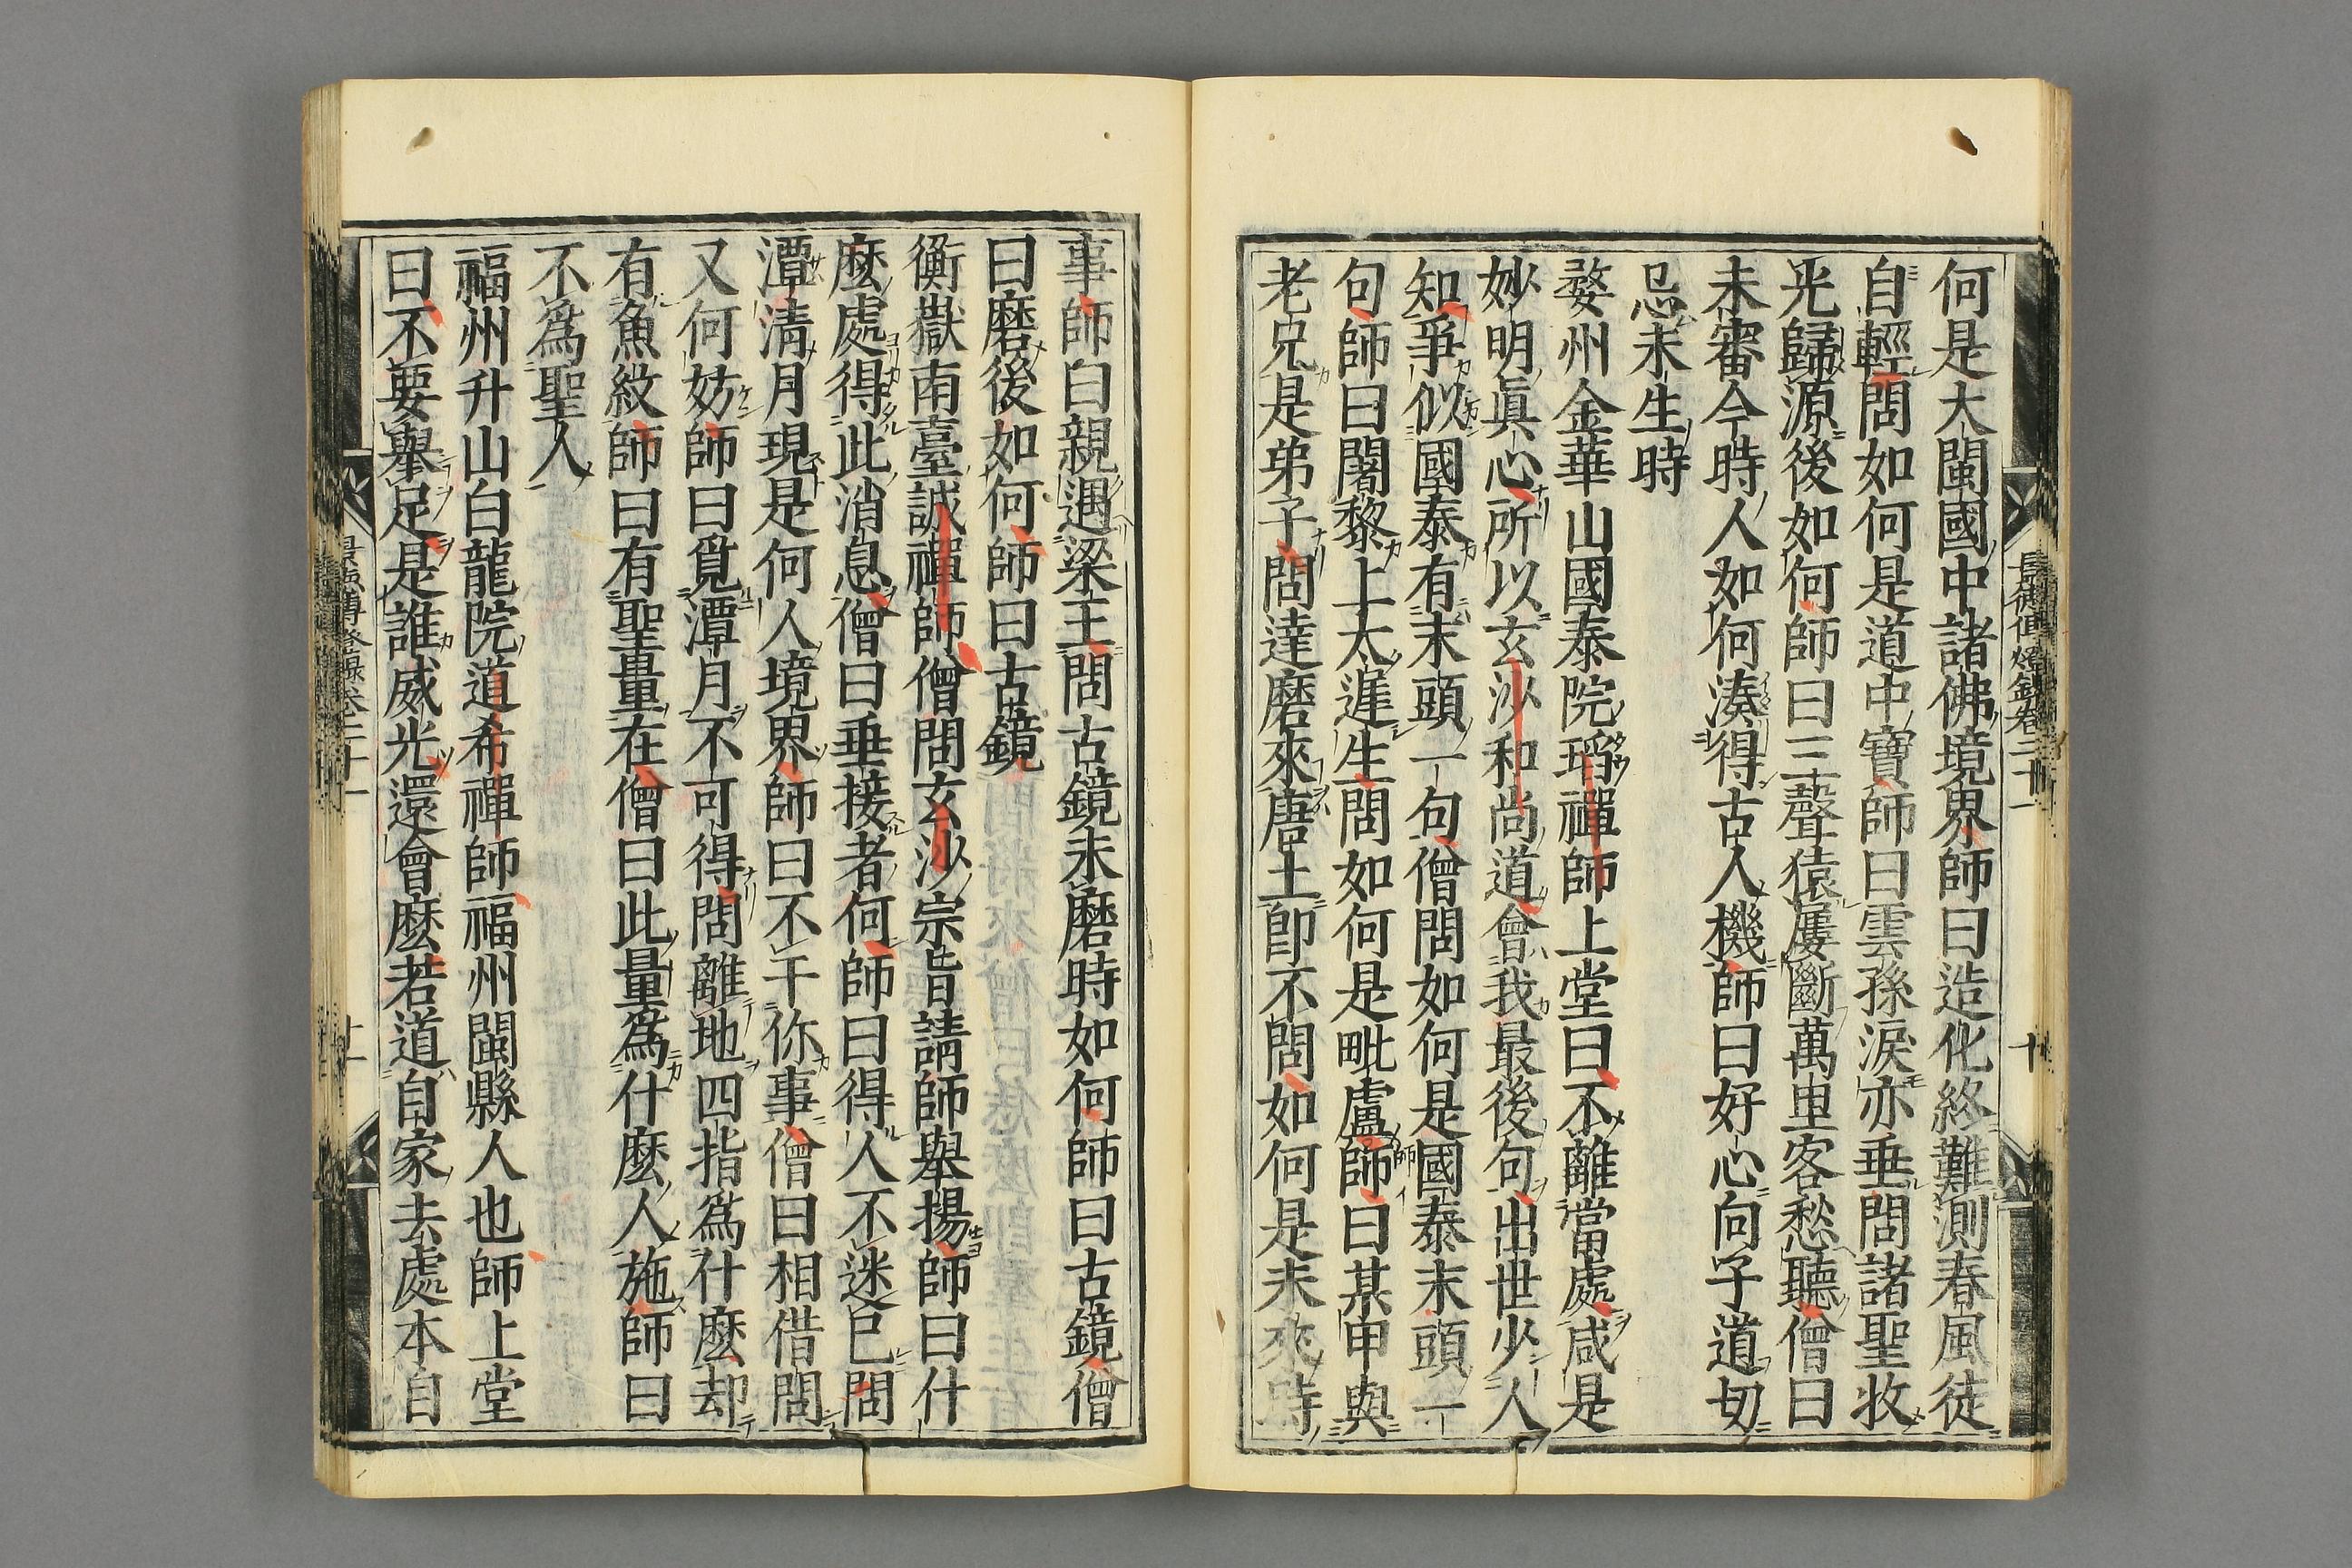 何是大閩國中諸佛境界師曰造化終難測春風徒
自輕問如何是道中寶師曰雲孫淚亦垂問諸聖收
光歸源後如何師曰三聲猿屢斷萬里客愁聽僧曰
未審今時人如何湊得古人機師曰好心向子道切
忌未生時
婺州金華山國泰院瑫禪師上堂曰不離當處咸是
妙明眞心所以玄沙和尚道會我最後句出世少人
知爭似國泰有末頭一句僧問如何是國泰末頭一
句師曰闍黎上太遲生問如何是毗盧師曰某甲與
老兄是弟子問達磨來唐土卽不問如何是未來時
景德傳燈錄卷二十一
十
事師曰親遇梁王問古鏡未磨時如何師曰古鏡僧
曰磨後如何師曰古鏡
衡嶽南臺誠禪師僧問玄沙宗旨請師舉揚師曰什
麼處得此消息僧曰垂接者何師曰得人不迷己問
潭清月現是何人境界師曰不干你事僧曰相借問
又何妨師曰覓潭月不可得問離地四指爲什麼却
有魚紋師曰有聖量在僧曰此量爲什麼人施師曰
不爲聖人
福州升山白龍院道希禪師福州閩縣人也師上堂
曰不要舉足是誰威光還會麼若道自家去處本自
景德傳燈錄卷二十一
十一